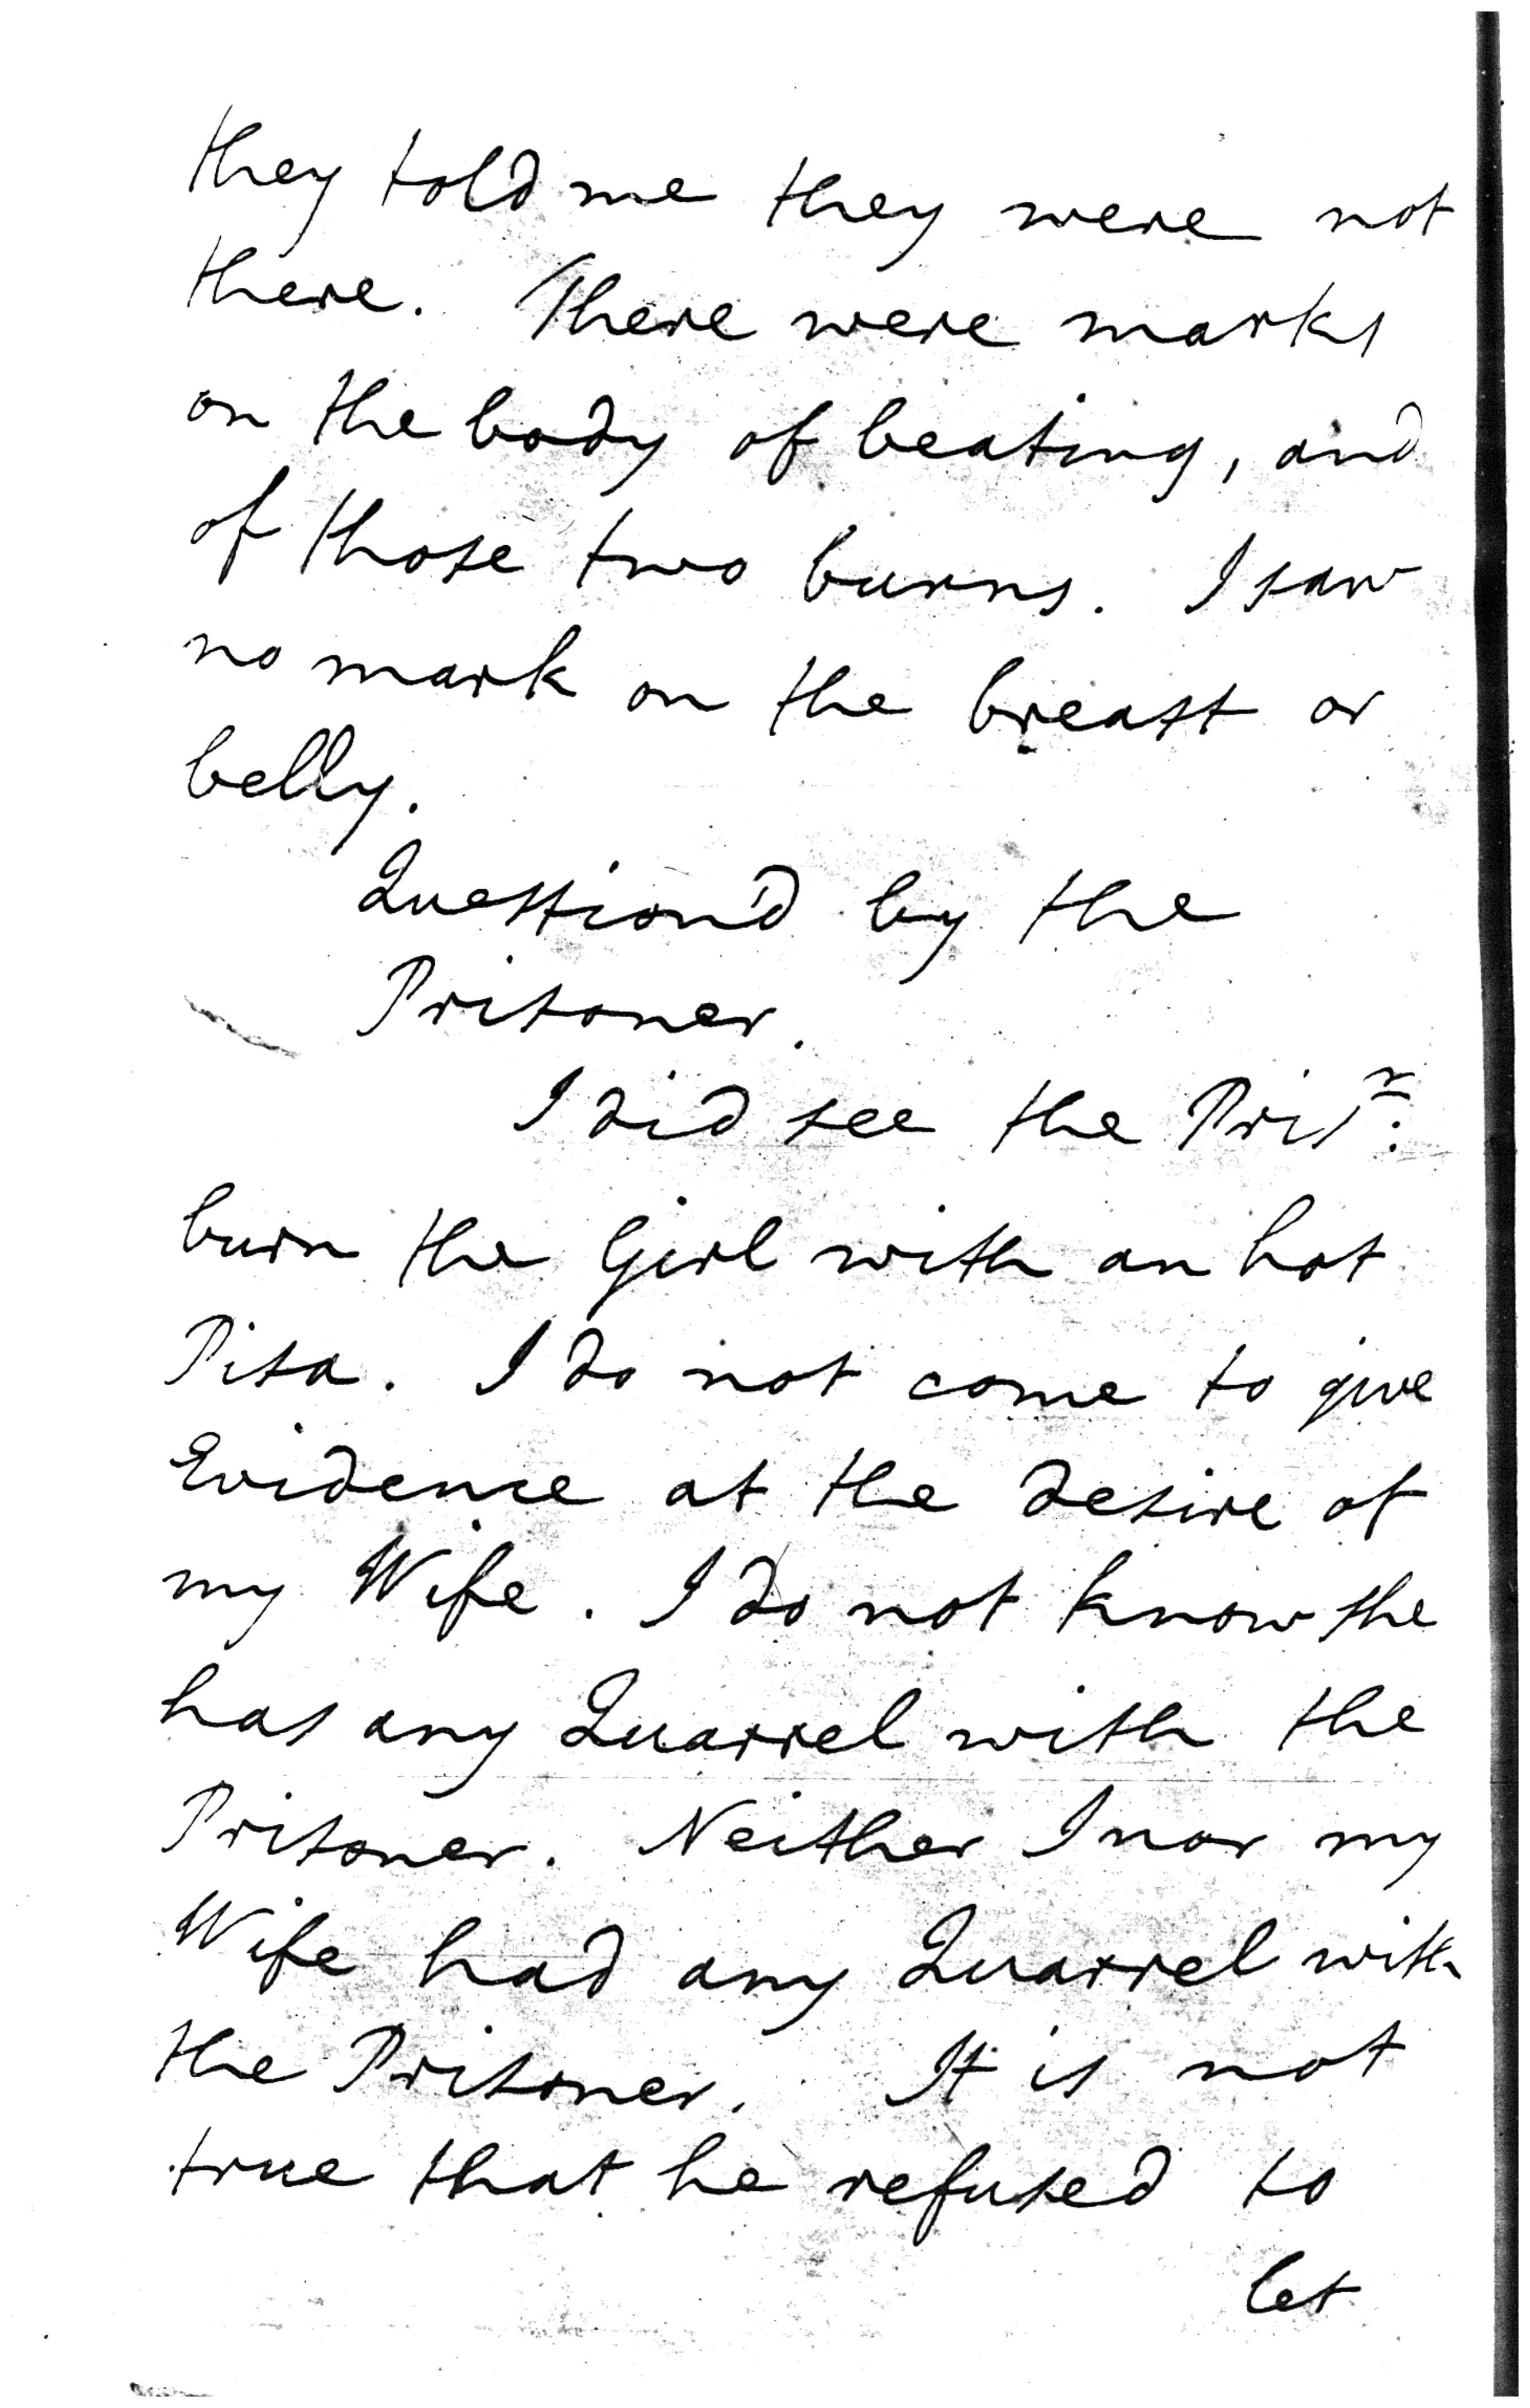 they told me they were not
there. There were marks
on the body of beating, and
of those two burns. I saw
no mark on the breast or
belly.
Question'd by the
Prisoner.
I did see the Prisr:
burn the Girl with an hot
Pisa. I do not come to give
Evidence at the desire of
my Wife. I do not know she
has any Quarrel with the
Prisoner. Neither I nor my
Wife had any Quarrel with
the Prisoner. It is not
true that he refused to
let